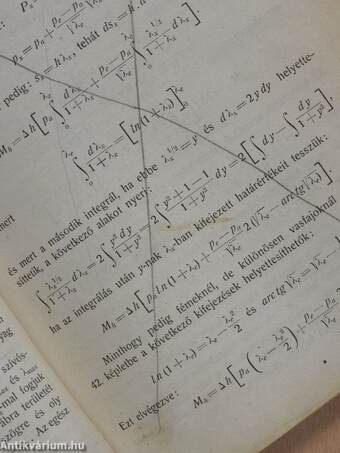 p_x = p_a + (p_e − p_a)/√λ_e
pedig: s_x = h λ_x, tehát ds_x = h.d
M_h = Δh [ p_a ∫_0 dλ_x/(1+λ_x) + (p_e − p_a)/√λ_e ∫_0 λ_x^{1/2} dλ_x/(1+λ_x) ].
mert
∫_0^{λ_e} dλ_x/(1+λ_x) = [ ln(1+λ_x) ]_0^{λ_e}
és mert a második integrál, ha ebbe λ_x^{1/2} = y és dλ_x = 2 y dy helyette-
sítjük, a következő alakot nyeri:
∫ λ_x^{1/2} dλ_x/(1+λ_x) = 2 ∫ y² dy/(1+y²) = 2 ∫ (y²+1−1)/(1+y²) dy = 2 [ ∫ dy − ∫ dy/(1+y²) ],
ha az integrálás után y-nak λ_x-ban kifejezett határértékeit tesszük:
M_h = Δh [ p_a ln(1+λ_e) + (p_e − p_a)/√λ_e 2(√λ_e − arctg √λ_e) ].
Minthogy pedig fémeknél, de különösen vasfajoknál
42. képletbe a következő kifejezések helyettesíthetők:
ln(1+λ_e) = λ_e − λ_e²/2 és arctg √λ_e = √λ_e −
Ezt elvégezve:
M_h = Δh [ p_a (λ_e − λ_e²/2) + (p_e − p_a)/√λ_e
yag
szívós-
és λ_max
mal fogjuk
ábra területét
szögre és oly
Az egész